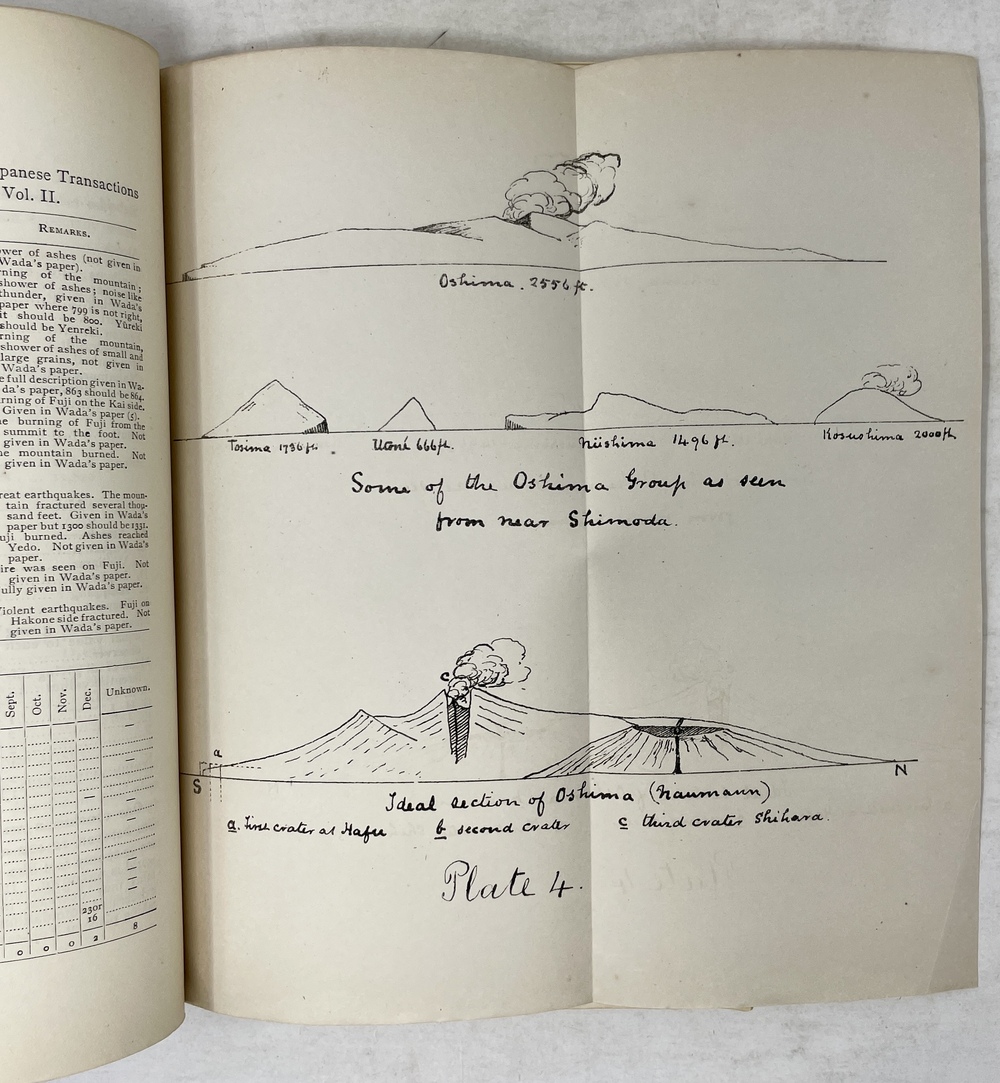 panese Transactions
Vol. II.
REMARKS.
wer of ashes (not given in
Wada's paper).
rning of the mountain;
shower of ashes; noise like
thunder, given in Wada's
paper where 799 is not right,
it should be 800. Yureki
should be Yenreki.
rning of the mountain,
shower of ashes of small and
large grains, not given in
Wada's paper.
e full description given in Wa-
da's paper, 863 should be 864.
rning of Fuji on the Kai side.
Given in Wada's paper (5).
he burning of Fuji from the
summit to the foot. Not
given in Wada's paper.
he mountain burned. Not
given in Wada's paper.
reat earthquakes. The moun-
tain fractured several thou-
sand feet. Given in Wada's
paper but 1300 should be 1331.
uji burned. Ashes reached
Yedo. Not given in Wada's
paper.
ire was seen on Fuji. Not
given in Wada's paper.
ully given in Wada's paper.
Violent earthquakes. Fuji on
Hakone side fractured. Not
given in Wada's paper.
Sept.
Oct.
Nov.
Dec.
Unknown.
23 or
16
0 0 0 2 8
Oshima. 2556 ft.
Tosima 1736 ft.
Utone 666 ft.
Niishima 1496 ft.
Kosushima 2000 ft
Some of the Oshima Group as seen
from near Shimoda.
c
a
b
S
N
Ideal section of Oshima (Naumann)
a. First crater at Hafu
b second crater
c third crater Shihara.
Plate 4.